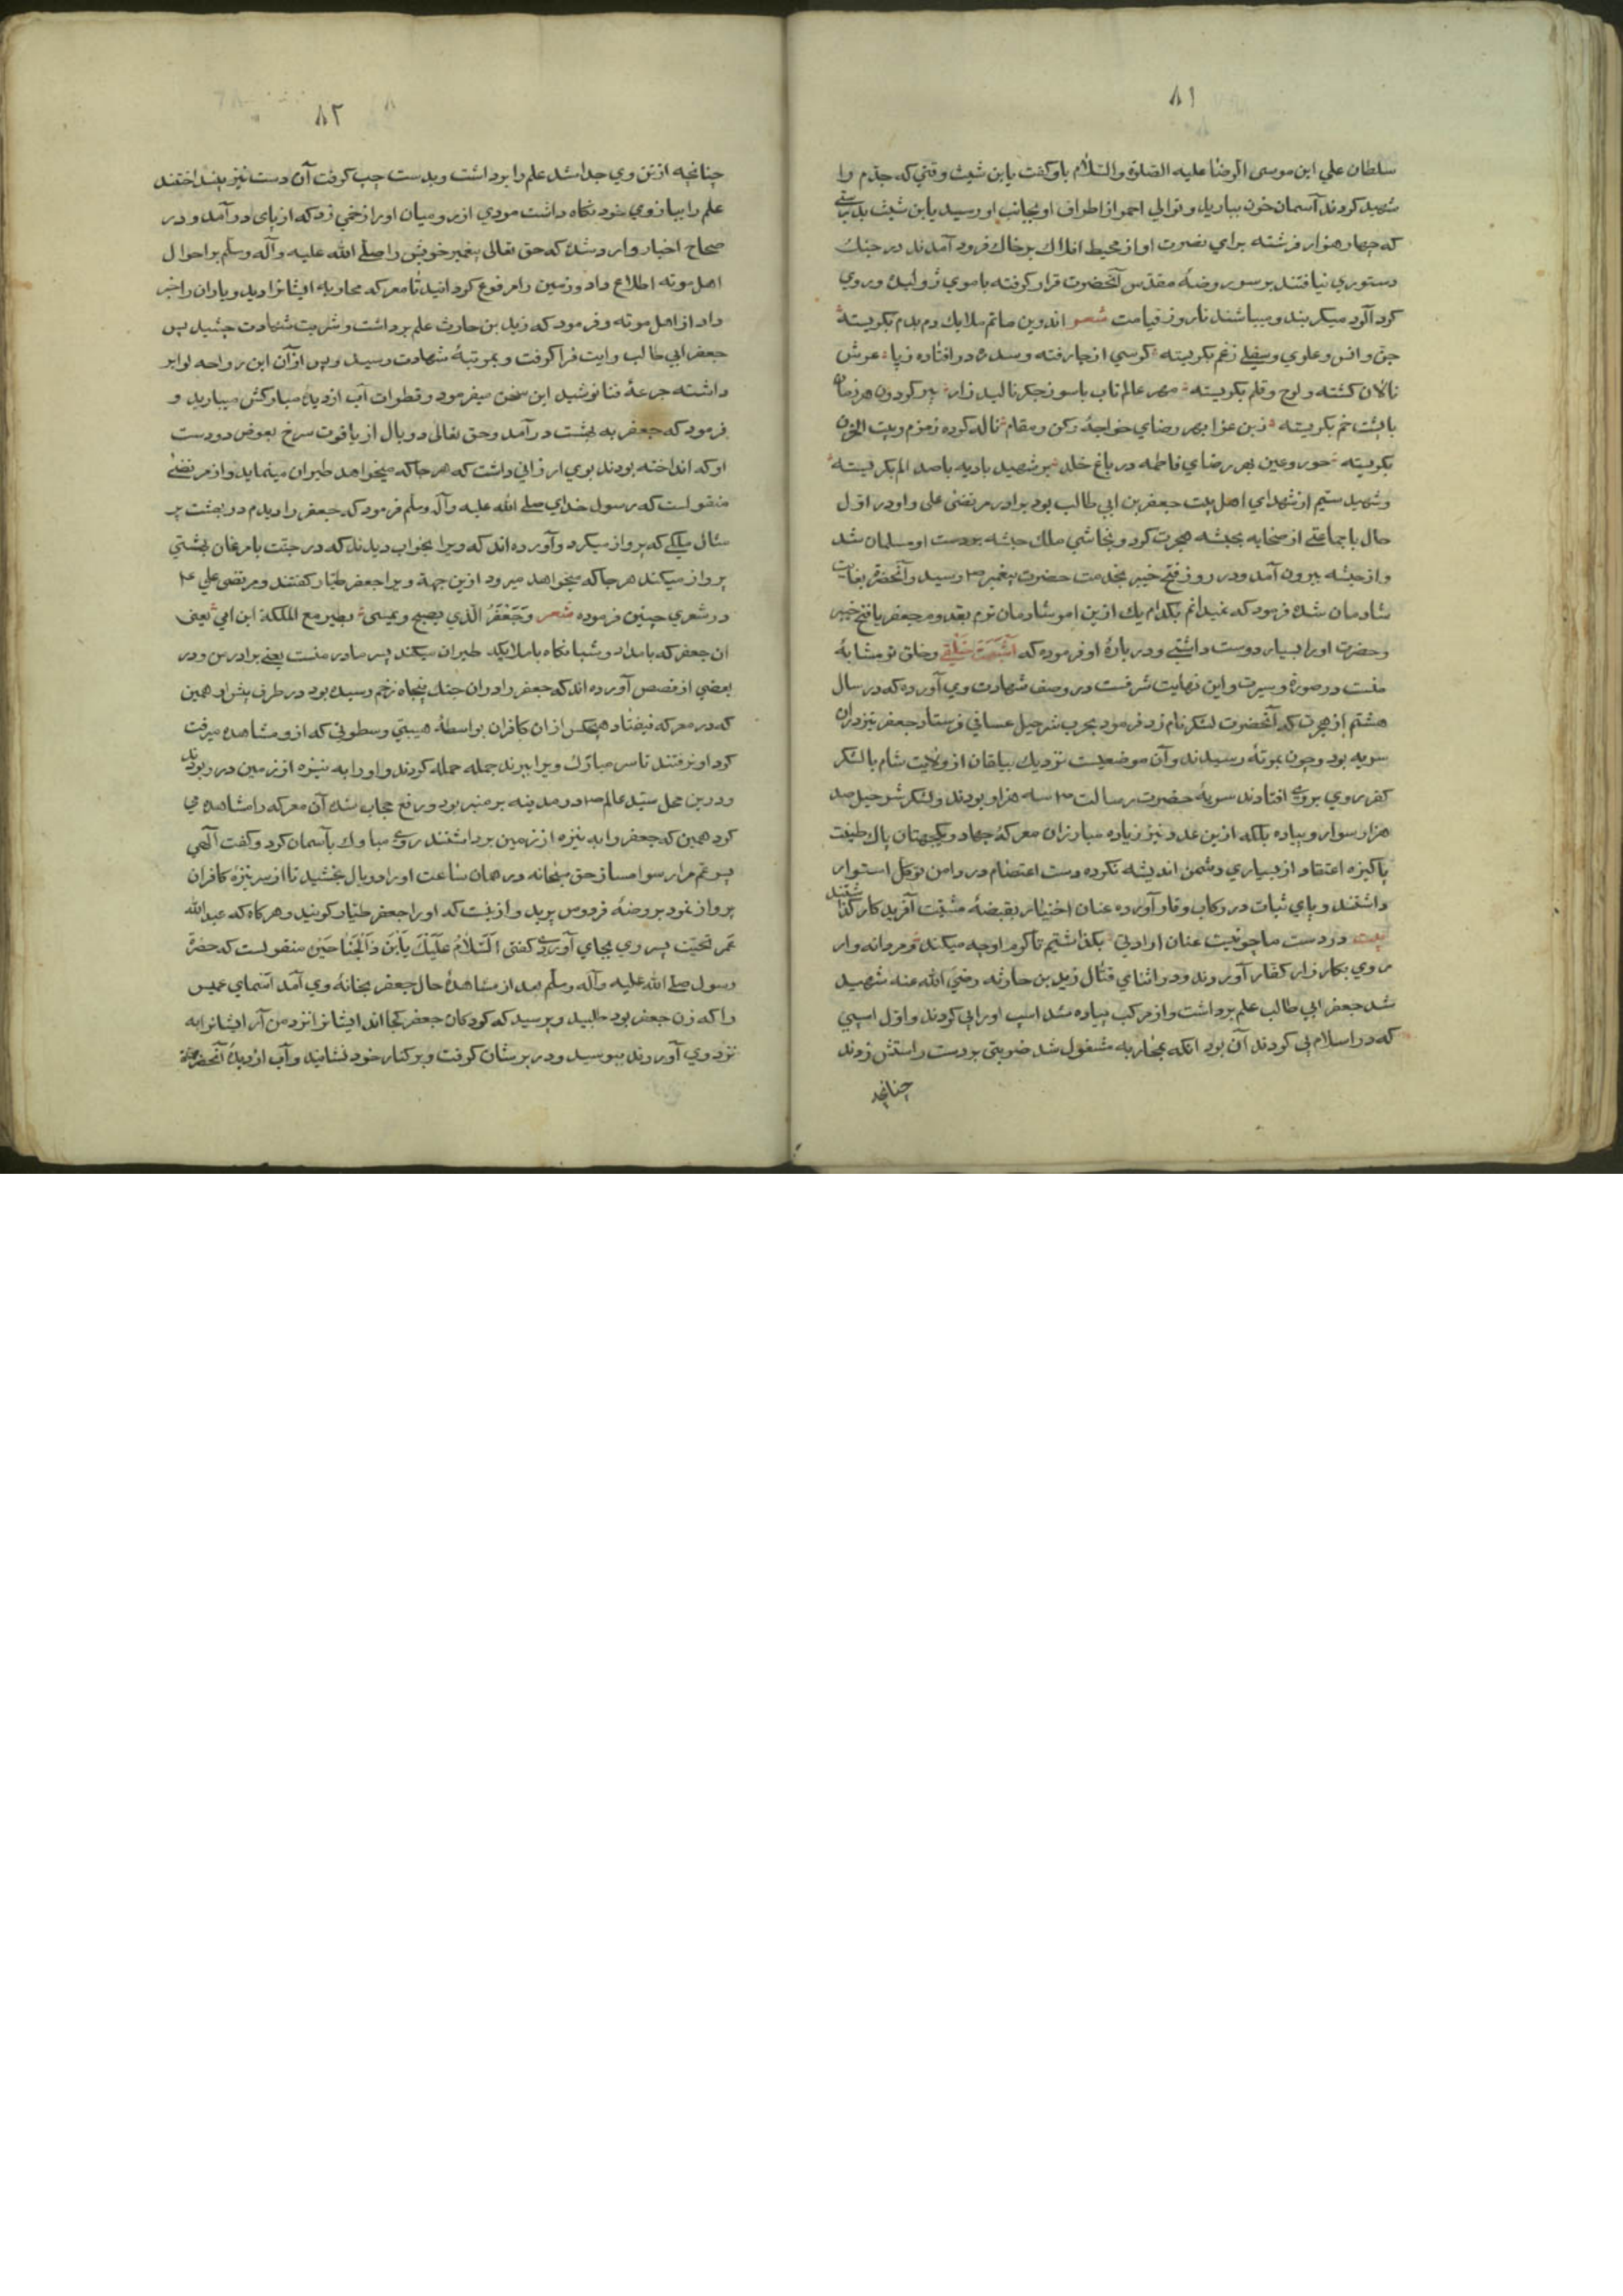 ۸۱
سلطان علي ابن موسى الرضا عليه الصلوة والسلام باو كفت يا بن شبيب وقتي كه جدّم را
شهيد كردند آسمان خون بباريد و توالي احمر از اطراف او بجانب او رسيد يا بن شبيب بدرستي
كه چهار هزار فرشته براي نصرت او از محيط افلاك بر خاك فرود آمدند در جنك
دستوري نيافتند بر سر روضهٔ مقدس آنحضرت قرار كرفته با موي ژوليده و روي
كرد آلود ميكريند و ميباشند تا روز قيامت شعر اندرين ماتم ملايك دم بدم بكريسته
جن و انس و علوي و سفلي ز غم بكريسته كرسي از جا رفته و سدره در افتاده ز پا عرش
نالان كشته و لوح و قلم بكريسته مهر عالم تاب با سوز جكر ناليد زار پير كردون هر زمان
با پشت خم بكريسته زين عزا بهر رضاي خواجهٔ ركن و مقام ناله كرده زمزم و بيت الحرم
بكريسته حور و عين بهر رضاي فاطمه در باغ خلد بر شهيد باديه با صد الم بكريسته
و شهيد سيّم از شهداي اهل بيت جعفر بن ابي طالب بود برادر مرتضى علي و او در اول
حال با جماعتي از صحابه بحبشه هجرت كرد و نجاشي ملك حبشه بر دست او مسلمان شد
و از حبشه بيرون آمد و در روز فتح خيبر بخدمت حضرت پيغمبر ص رسيد و آنحضرت بغايت
شادمان شده فرمود كه نميدانم بكدام يك ازين امر شادمان ترم بقدوم جعفر يا فتح خيبر
و حضرت او را بسيار دوست داشتي و در بارهٔ او فرموده كه اشبهت خلقي و خلق تو مشابهٔ
منست در صورة و سيرت و اين نهايت شرفست در وصف شهادت وي آورده كه در سال
هشتم از هجرت كه آنحضرت لشكر نام زد فرمود بحرب شرحبيل عساني فرستاد جعفر نيز دران
سريه بود و چون بموته رسيدند و آن موضعيست نزديك ببلقان از ولايت شام با لشكر
كفر روي بروي افتادند سريهٔ حضرت رسالت ص سه هزار بودند و لشكر شرحبيل صد
هزار سوار و پياده بلكه ازين عدد نيز زياده مبارزان معركهٔ جهاد و يكجهتان پاك طينت
پاكيزه اعتقاد از بسياري دشمن انديشه نكرده دست اعتصام در دامن توكل استوار
داشتند و پاي ثبات در ركاب وقار آورده عنان اختيار بقبضهٔ مشيت آفريدكار كذاشتند
بيت در دست ما چو نيست عنان ارادتي بكذاشتيم تا كرم او چه ميكند و مردانه وار
روي بكارزار كفار آوردند و در اثناي قتال زيد بن حارثه رضي الله عنه شهيد
شد جعفر ابي طالب علم برداشت و از مركب پياده شد اسپ او را پي كردند و اول اسپي
كه در اسلام پي كردند آن بود انكه بمحاربه مشغول شد ضربتي بر دست راستش زدند
چنانچه
۸۲
چنانچه از تن وي جدا شد علم را برداشت و بدست چپ كرفت آن دست نيز بينداختند
علم را ببازوي خود نكاه داشت مردي از روميان او را زخمي زد كه از پاي در آمد و در
صحاح اخبار وارد شده كه حق تعالى پيغمبر خويش را صلى الله عليه وآله وسلم بر احوال
اهل موته اطلاع داد و زمين را مرفوع كردانيد تا معركه محاربهٔ ايشانرا ديد و ياران را خبر
داد از اهل موته و فرمود كه زيد بن حارث علم برداشت و شربت شهادت چشيد پس
جعفر ابي طالب رايت فرا كرفت و بمرتبهٔ شهادت رسيد و پس از آن ابن رواحه لوا بر
داشته جرعهٔ فنا نوشيد اين سخن ميفرمود و قطرات آب از ديدهٔ مباركش ميباريد و
فرمود كه جعفر به بهشت در آمد و حق تعالى دو بال از ياقوت سرخ بعوض دو دست
او كه انداخته بودند بوي ارزاني داشت كه هر جا كه ميخواهد طيران مينمايد و از مرتضى
منقولست كه رسول خداي صلى الله عليه وآله وسلم فرمود كه جعفر را ديدم در بهشت بر
مثال ملكي كه پرواز ميكرد و آورده اند كه ويرا بخواب ديدند كه در جنت با مرغان بهشتي
پرواز ميكند هر جا كه ميخواهد ميرود ازين جهة ويرا جعفر طيار كفتند و مرتضى علي ع
در شعري چنين فرموده شعر وجعفر الذي يصبح ويمسى يطير مع الملكة ابن امي يعني
ان جعفر كه بامداد و شبانكاه با ملايكه طيران ميكند پسر مادر منست يعني برادر من و در
بعضي از قصص آورده اند كه جعفر را دران جنك پنجاه زخم رسيده بود در طرف پيش او همين
كه در معركه نيفتاد هيچكس از ان كافران بواسطهٔ هيبتي و سطوتي كه از و مشاهده ميرفت
كرد او نرفتند تا سر مبارك ويرا ببرند جمله حمله كردند و او را به نيزه از زمين در ربودند
و در ين محل سيّد عالم ص در مدينه بر منبر بود و رفع حجاب شده آن معركه را مشاهده مي
كرد همين كه جعفر را به نيزه از زمين برداشتند روي مبارك بآسمان كرد و كفت آلهي
پسر عم مرا رسوا مساز حق سبحانه در همان ساعت او را دو بال بخشيد تا از سر نيزهٔ كافران
پرواز نمود بروضهٔ فردوس پريد و ازينست كه او را جعفر طيار كويند و هر كاه كه عبد الله
عمر تحيّت پسر وي بجاي آوردي كفتي السلام عليك يا بن ذا الجناحين منقولست كه حضرت
رسول صلى الله عليه وآله وسلم بعد از مشاهدهٔ حال جعفر بخانهٔ وي آمد اسماي عميس
را كه زن جعفر بود طلبيد و پرسيد كه كودكان جعفر كجا اند ايشانرا نزد من آر ايشانرا به
نزد وي آوردند ببوسيد و در بر شان كرفت و بر كنار خود نشانيد و آب از ديدهٔ آنحضرت